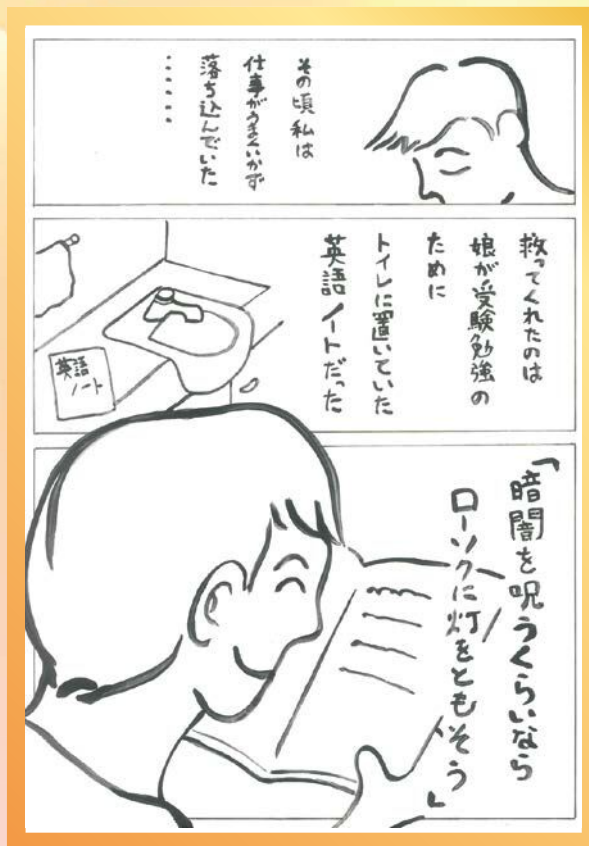 その頃私は
仕事がうまくいかず
落ち込んでいた
・・・・・・
救ってくれたのは
娘が受験勉強の
ために
トイレに置いていた
英語ノートだった
英語
ノート
「暗闇を呪うくらいなら
ローソクに灯をともそう」